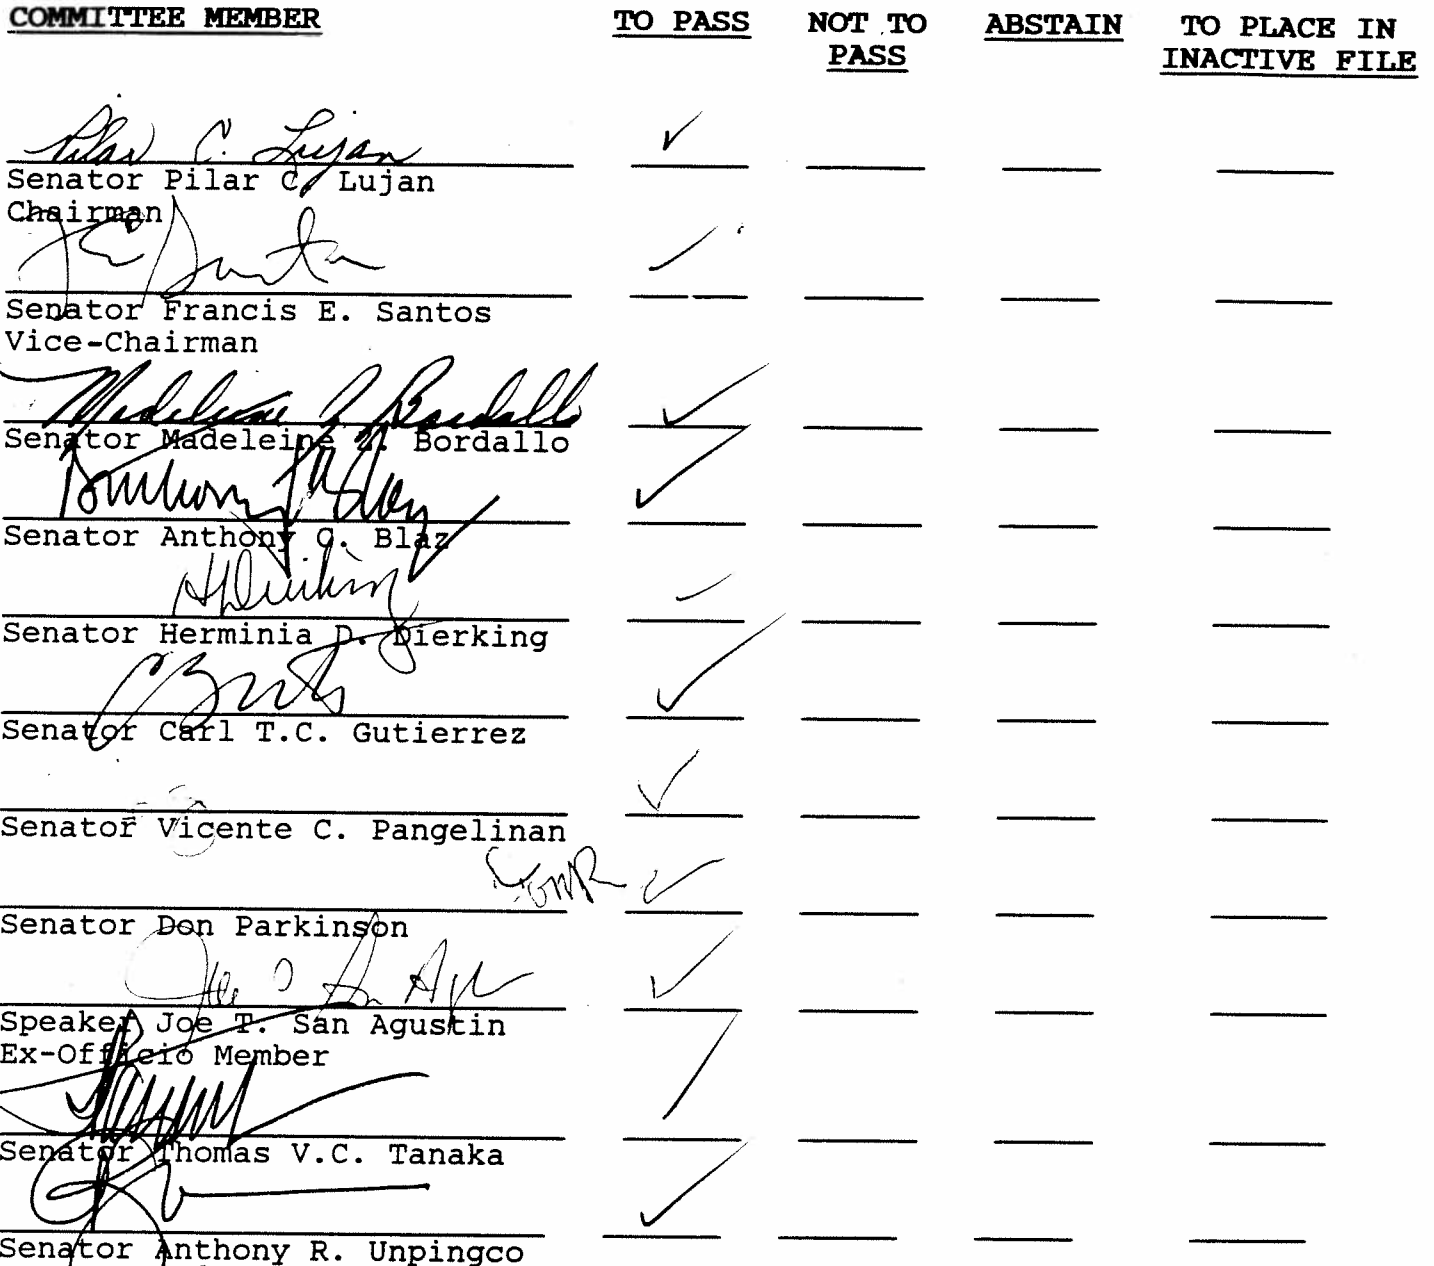 COMMITTEE MEMBER TO PASS NOT TO PASS ABSTAIN TO PLACE IN INACTIVE FILE
Pilar C. Lujan ✓
Senator Pilar C. Lujan
Chairman
✓
Senator Francis E. Santos
Vice-Chairman
Madeleine Z. Bordallo ✓
Senator Madeleine Z. Bordallo
✓
Senator Anthony C. Blaz
✓
Senator Herminia D. Dierking
✓
Senator Carl T.C. Gutierrez
✓
Senator Vicente C. Pangelinan
✓
Senator Don Parkinson
✓
Speaker Joe T. San Agustin
Ex-Officio Member
Senator Thomas V.C. Tanaka
✓
Senator Anthony R. Unpingco